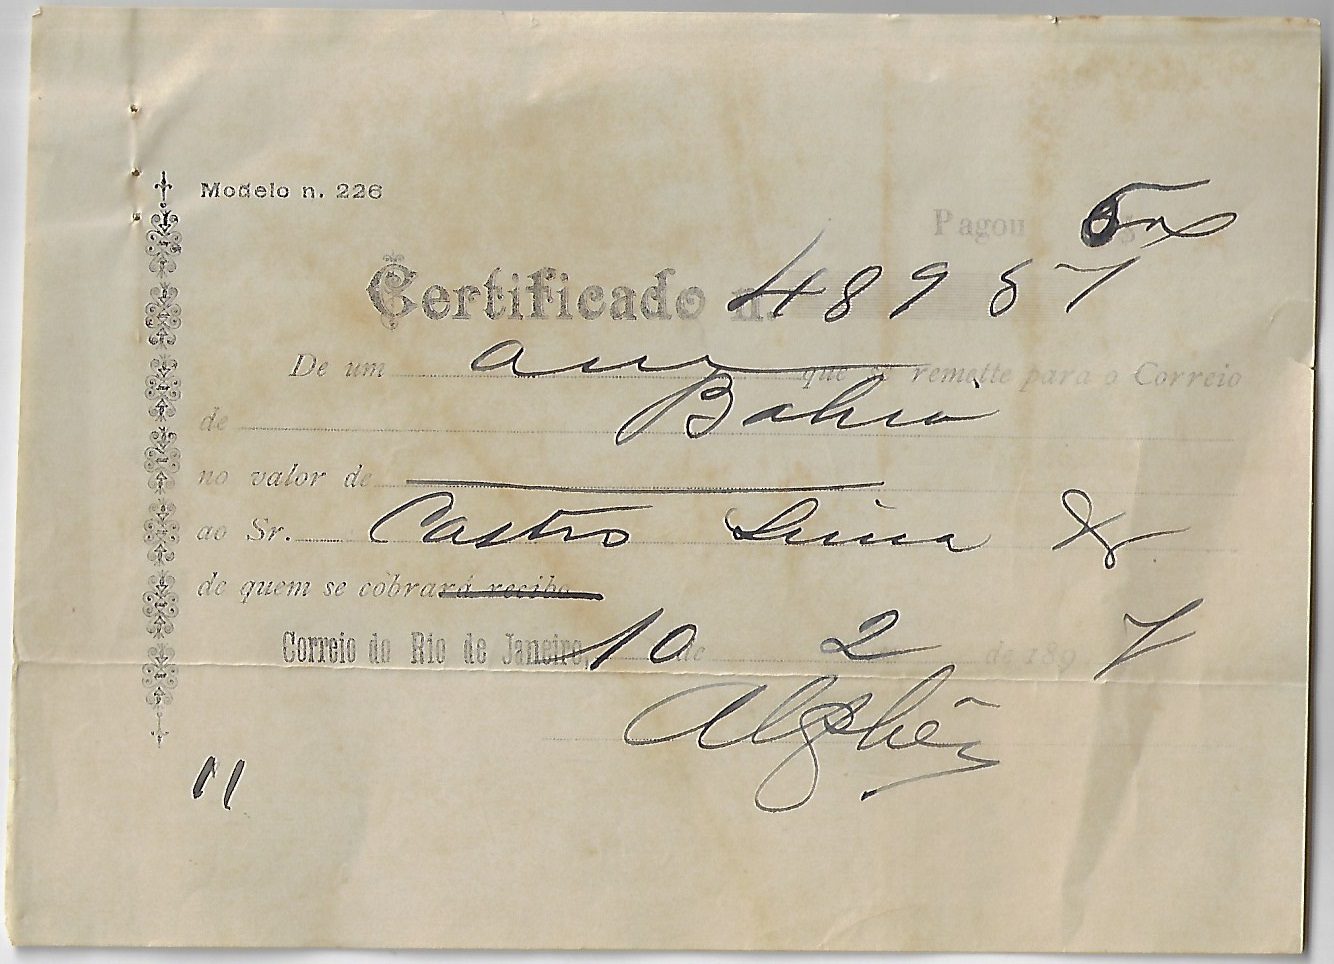 Modelo n. 226
Pagou
Certificado n. 48957
De um que se remette para o Correio
de Bahia
no valor de
ao Sr. Castro Lima &
de quem se cobrará recibo
Correio do Rio de Janeiro, 10 de 2 de 1897
11